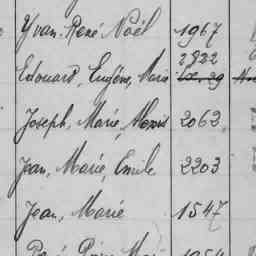 Yvan, René Noël 1967
2822
Edouard, Eugène, Marie
Joseph, Marie, Alexis 2062
Jean, Marie, Emile 2203
Jean, Marie 1547